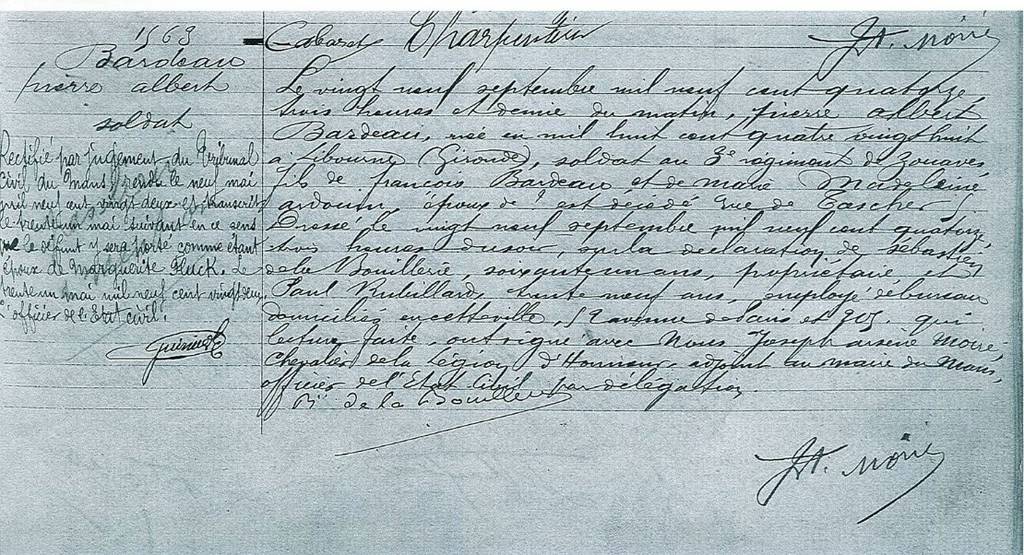 Cabaret Charpentier JA. Moiré
1563
Bardeau
pierre albert
soldat
Rectifié par jugement du Tribunal
Civil du Mans, rendu le neuf mai
mil neuf cent vingt deux et transcrit
le trente un mai suivant en ce sens
que le défunt y sera porté comme étant
époux de Marguerite Fluck. Le
trente un mai mil neuf cent vingt deux
l'officier de l'Etat civil.
Le vingt neuf septembre mil neuf cent quatorze,
trois heures et demie du matin, pierre albert
Bardeau, né en mil huit cent quatre vingt huit
à Libourne (Gironde), soldat au 3e régiment de Zouaves
fils de françois Bardeau et de marie Madeleine
ardouin, époux de ? est décédé rue de Tascher
Dressé le vingt neuf septembre mil neuf cent quatorze,
trois heures du soir, sur la déclaration de Sébastien
de la Bouillerie, soixante un ans, propriétaire et
Paul Rubillard, trente neuf ans, employé de bureau
domiciliés en cette ville, 59 avenue de Paris et qui
lecture faite, ont signé avec Nous Joseph arsène Moiré,
Chevalier de la Légion d'Honneur, adjoint au maire du Mans,
officier de l'Etat Civil par délégation.
Bon de la Bouillerie
JA. Moiré